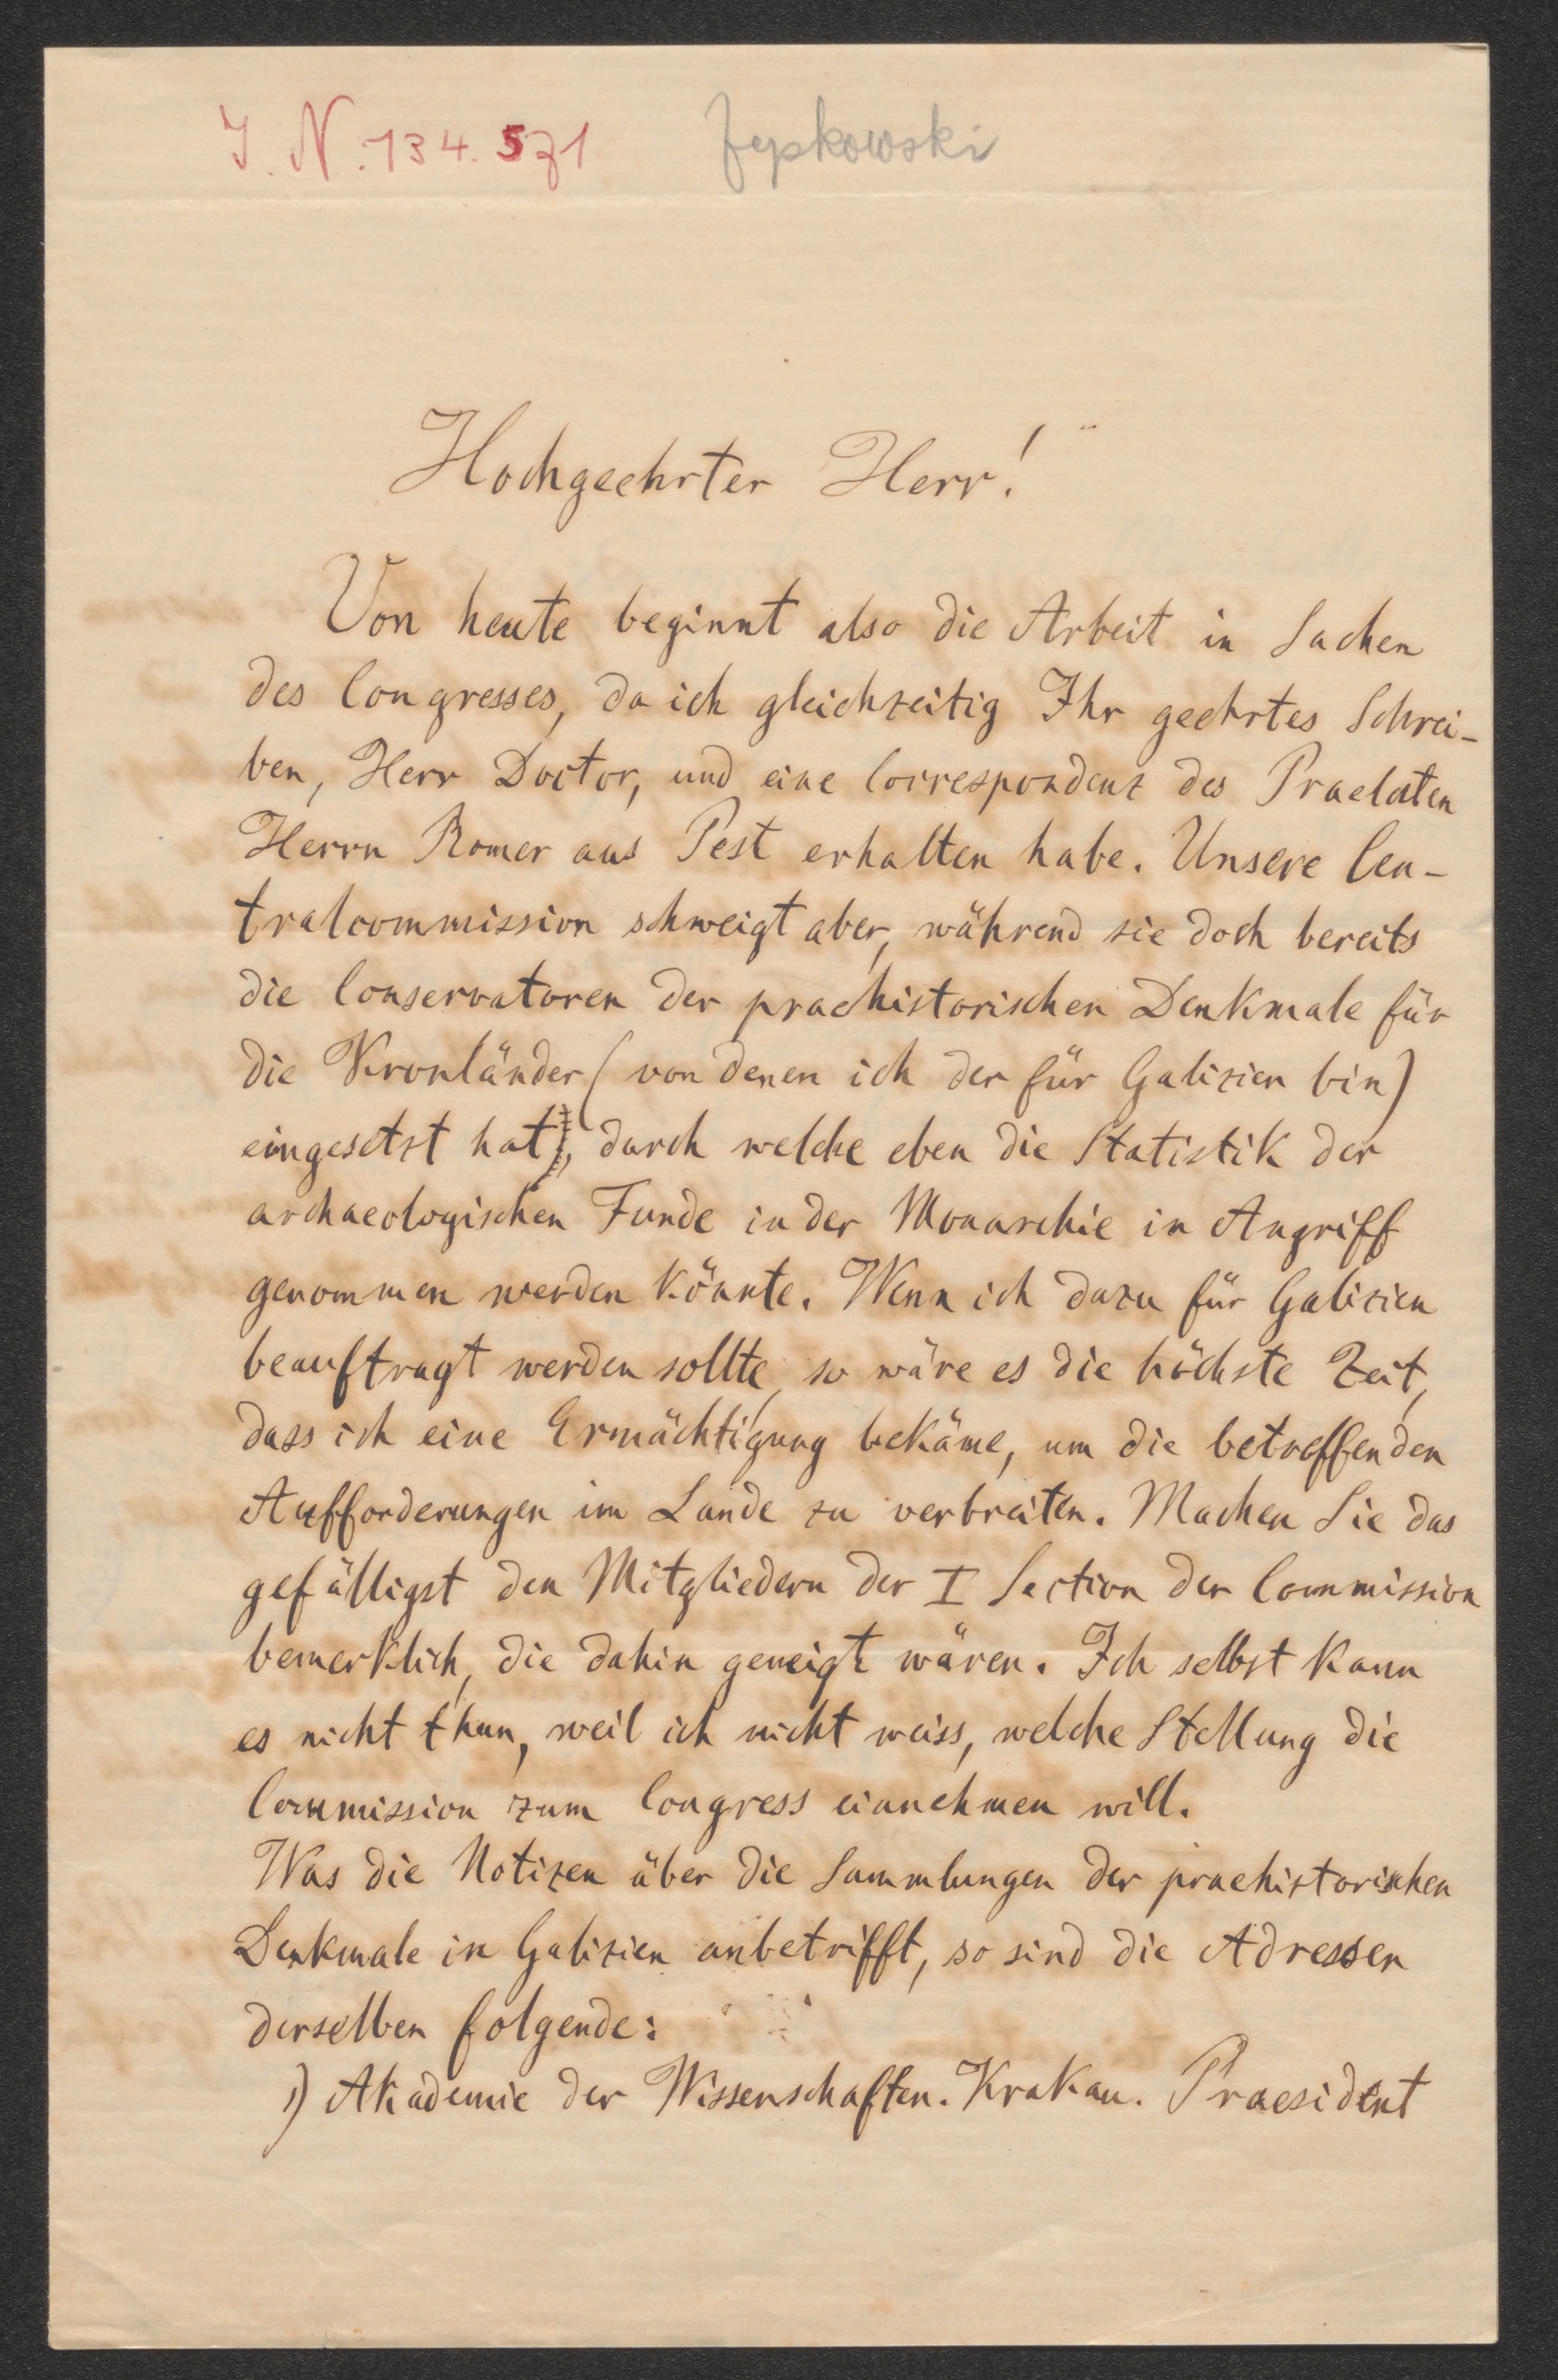 I. N. 134.571 Jepkowski
Hochgeehrter Herr!
Von heute beginnt also die Arbeit in Sachen
des Congresses, da ich gleichzeitig Ihr geehrtes Schrei-
ben, Herr Doctor, und eine Correspondenz des Praelaten
Herrn Romer aus Pest erhalten habe. Unsere Cen-
tralcommission schweigt aber, während sie doch bereits
die Conservatoren der praehistorischen Denkmale für
die Kronländer (von denen ich der für Galizien bin)
eingesetzt hat, durch welche eben die Statistik der
archaeologischen Funde in der Monarchie in Angriff
genommen werden könnte. Wenn ich dazu für Galizien
beauftragt werden sollte, so wäre es die höchste Zeit,
dass ich eine Ermächtigung bekäme, um die betreffenden
Aufforderungen im Lande zu verbreiten. Machen Sie das
gefälligst den Mitgliedern der I Section der Commission
bemerklich, die dahin geneigt wären. Ich selbst kann
es nicht thun, weil ich nicht weiss, welche Stellung die
Commission zum Congress einnehmen will.
Was die Notizen über die Sammlungen der praehistorischen
Denkmale in Galizien anbetrifft, so sind die Adressen
derselben folgende:
1) Akademie der Wissenschaften. Krakau. Praesident